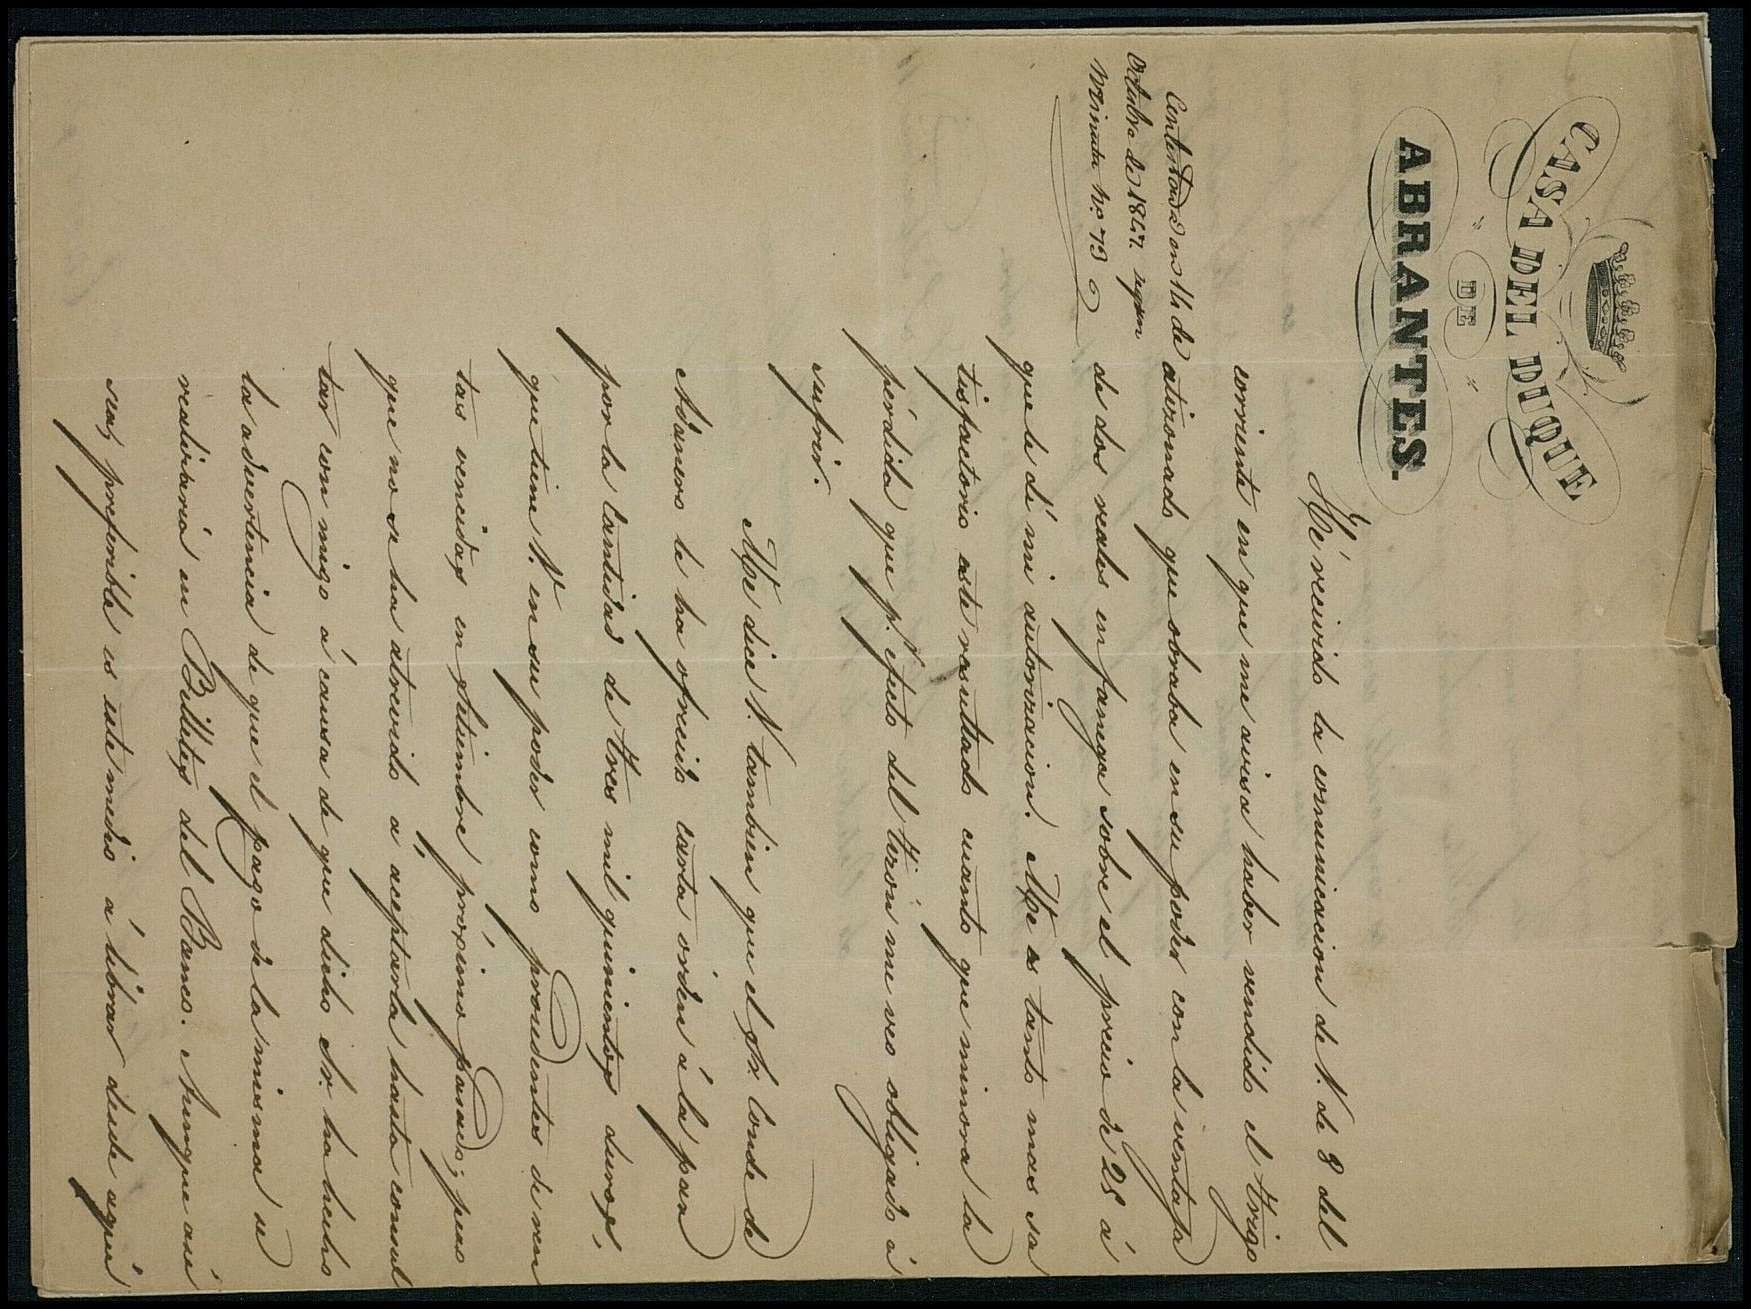 CASA DEL DUQUE
DE
ABRANTES.
Contestada en 14 de
Octubre de 1847. segun
Minuta Nº 73
Hé recivido la comunicacion de V. de 8 del
corriente en que me avisa haber vendido el trigo
atizonado que obraba en su poder con la ventaja
de dos reales en fanega sobre el precio de 25 á
que le dí mi autorizacion. Me es tanto mas sa
tisfactorio este resultado cuanto que minora la
pérdida que p.r efecto del tizon me veo obligado á
sufrir.
Me dice V. tambien que el Sr. Conde de
le ha ofrecido carta órden á la par
por la cantidad de tres mil quinientos duros,
que tiene V. en su poder como procedentes de ren
tas vencidas en Setiembre próximo pasado; pero
que no se ha atrevido á aceptarla hasta consul
tar con migo á causa de que dicho Sr. ha hecho
la advertencia de que el pago de la misma se
realizaria en Billetes del Banco. Aunque así
sea, preferible es este medio á librar desde aquí